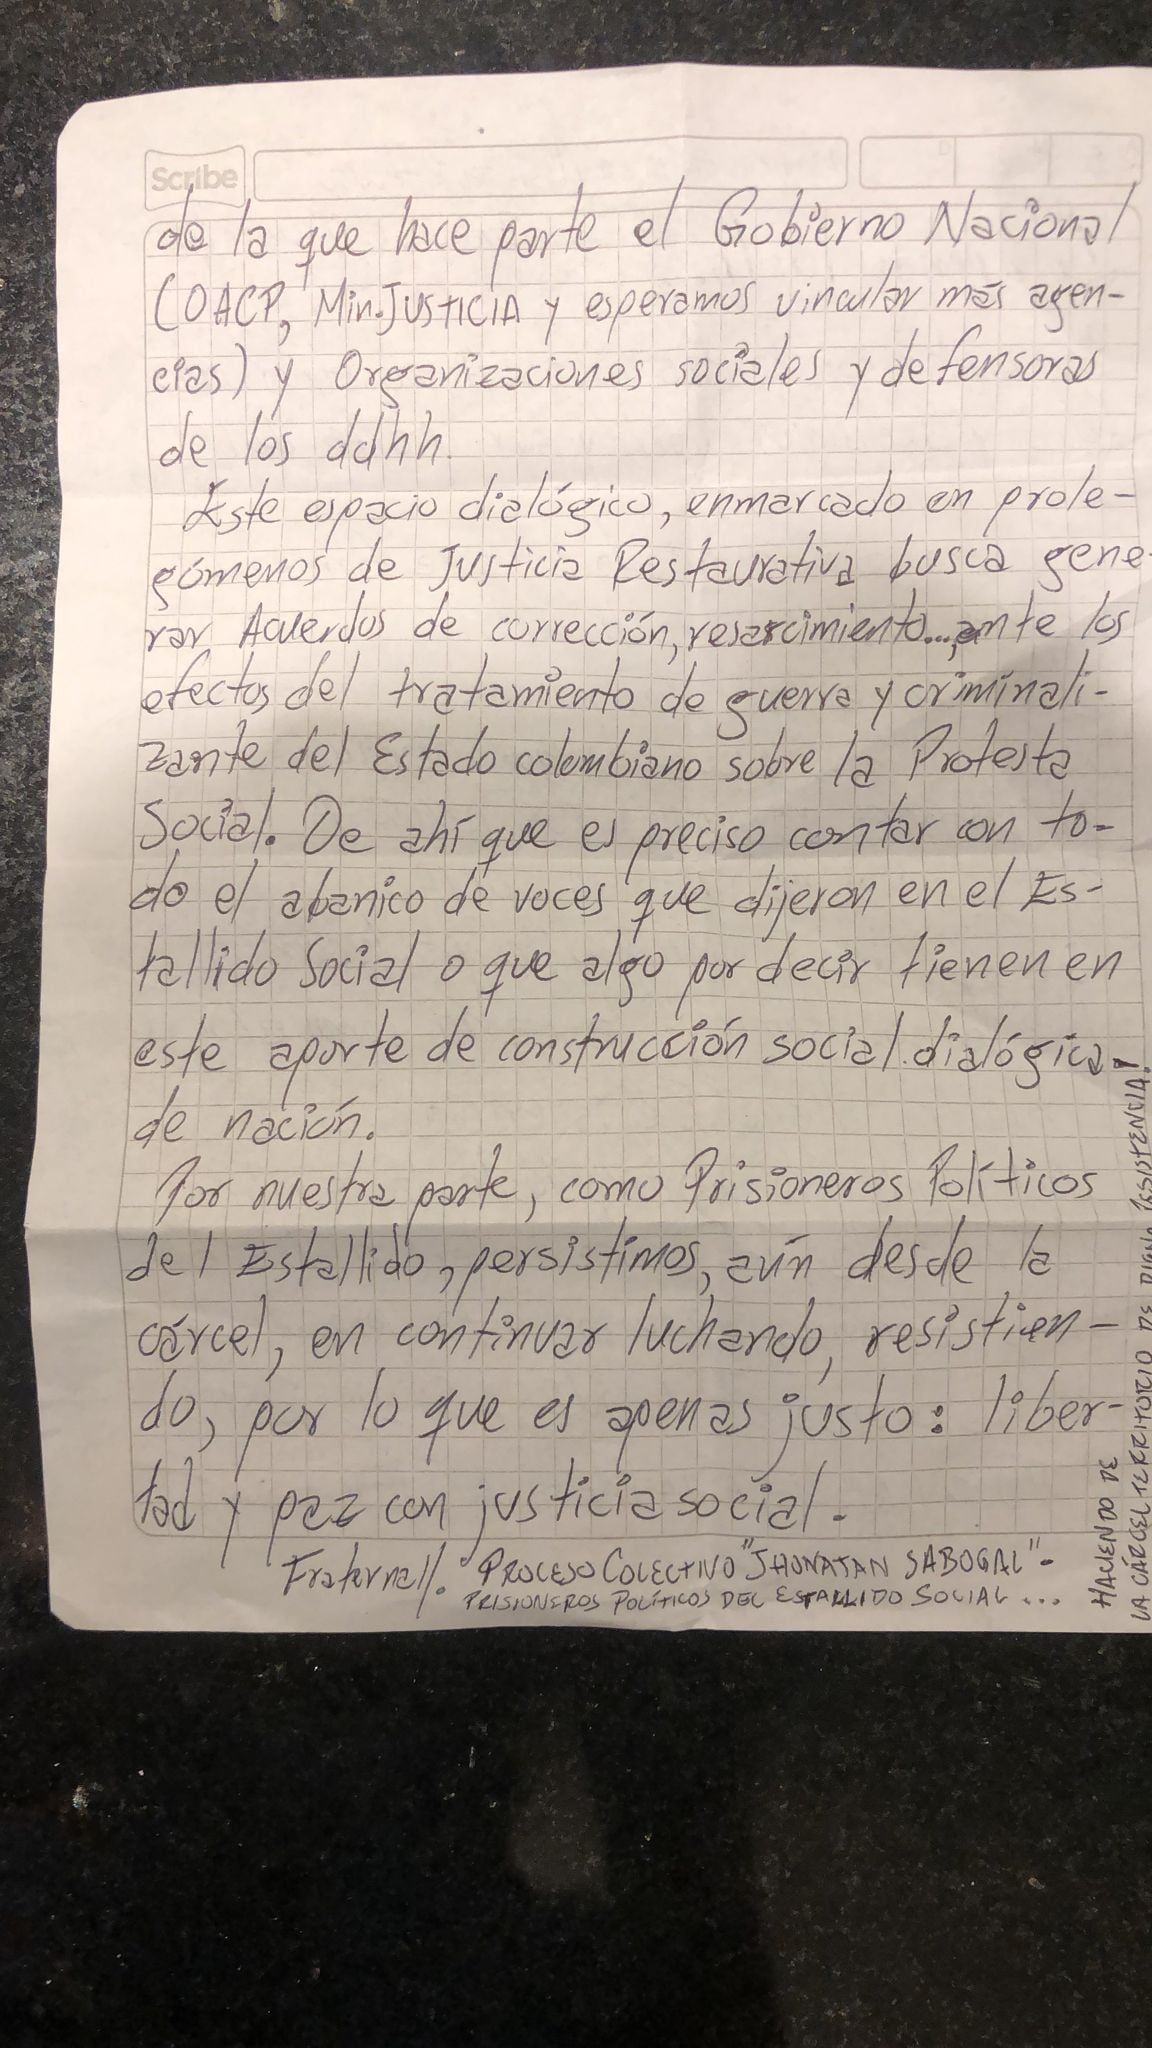 Scribe
de la que hace parte el Gobierno Nacional
(OACP, Min.JUSTICIA y esperamos vincular más agen-
cias) y Organizaciones sociales y defensoras
de los ddhh.
Este espacio dialógico, enmarcado en prole-
gómenos de Justicia Restaurativa busca gene-
rar Acuerdos de corrección, resarcimiento..., ante los
efectos del tratamiento de guerra y criminali-
zante del Estado colombiano sobre la Protesta
Social. De ahí que es preciso contar con to-
do el abanico de voces que dijeron en el Es-
tallido Social o que algo por decir tienen en
este aporte de construcción social dialógica
de nación.
Por nuestra parte, como Prisioneros Políticos
del Estallido, persistimos, aún desde la
cárcel, en continuar luchando, resistien-
do, por lo que es apenas justo: liber-
tad y paz con justicia social.
Fraternal/. PROCESO COLECTIVO "JHONATAN SABOGAL"-
PRISIONEROS POLÍTICOS DEL ESTALLIDO SOCIAL...
HACIENDO DE
LA CÁRCEL TERRITORIO DE DIGNA RESISTENCIA!